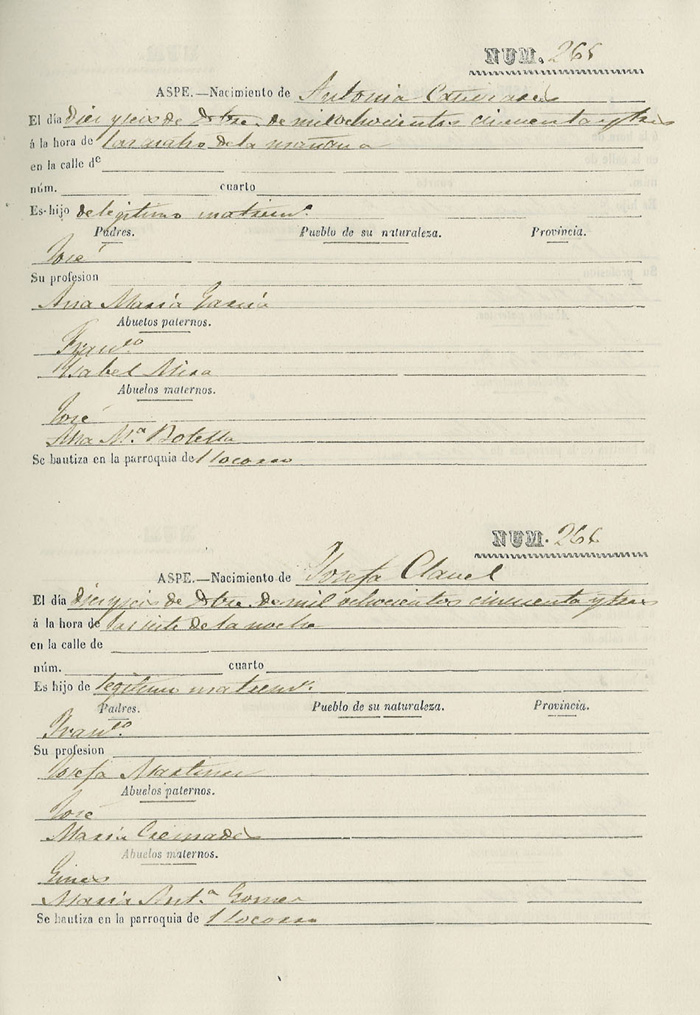 NUM. 265
ASPE.—Nacimiento de Antonia
El día diez y seis de Dbre. de mil ochocientos cincuenta y tres
á la hora de las de la mañana
en la calle de
núm. cuarto
Es hijo de legitimo matrim.º
Padres. Pueblo de su naturaleza. Provincia.
José
Su profesion
Ana María García
Abuelos paternos.
Fran.co
Ysabel Mira
Abuelos maternos.
José
Ana M.ª Botella
Se bautiza en la parroquia de l Socorro
NUM. 266
ASPE.—Nacimiento de Josefa Clavel
El día diez y seis de Dbre. de mil ochocientos cincuenta y tres
á la hora de las siete de la noche
en la calle de
núm. cuarto
Es hijo de legitimo matrim.º
Padres. Pueblo de su naturaleza. Provincia.
Fran.co
Su profesion
Josefa Martinez
Abuelos paternos.
José
María Cremades
Abuelos maternos.
Gines
María Ant.ª Gomez
Se bautiza en la parroquia de l Socorro